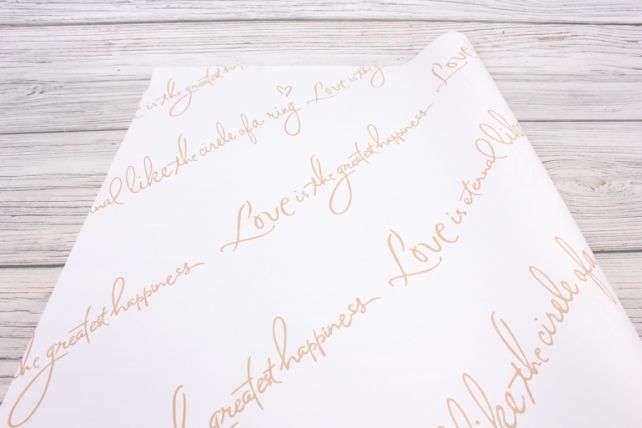 is the greatest
Love is the
Love
nal like the circle of a ring
Love is the greatest happiness
Love is eternal like
the greatest happiness
greatest happiness
like the circle of a